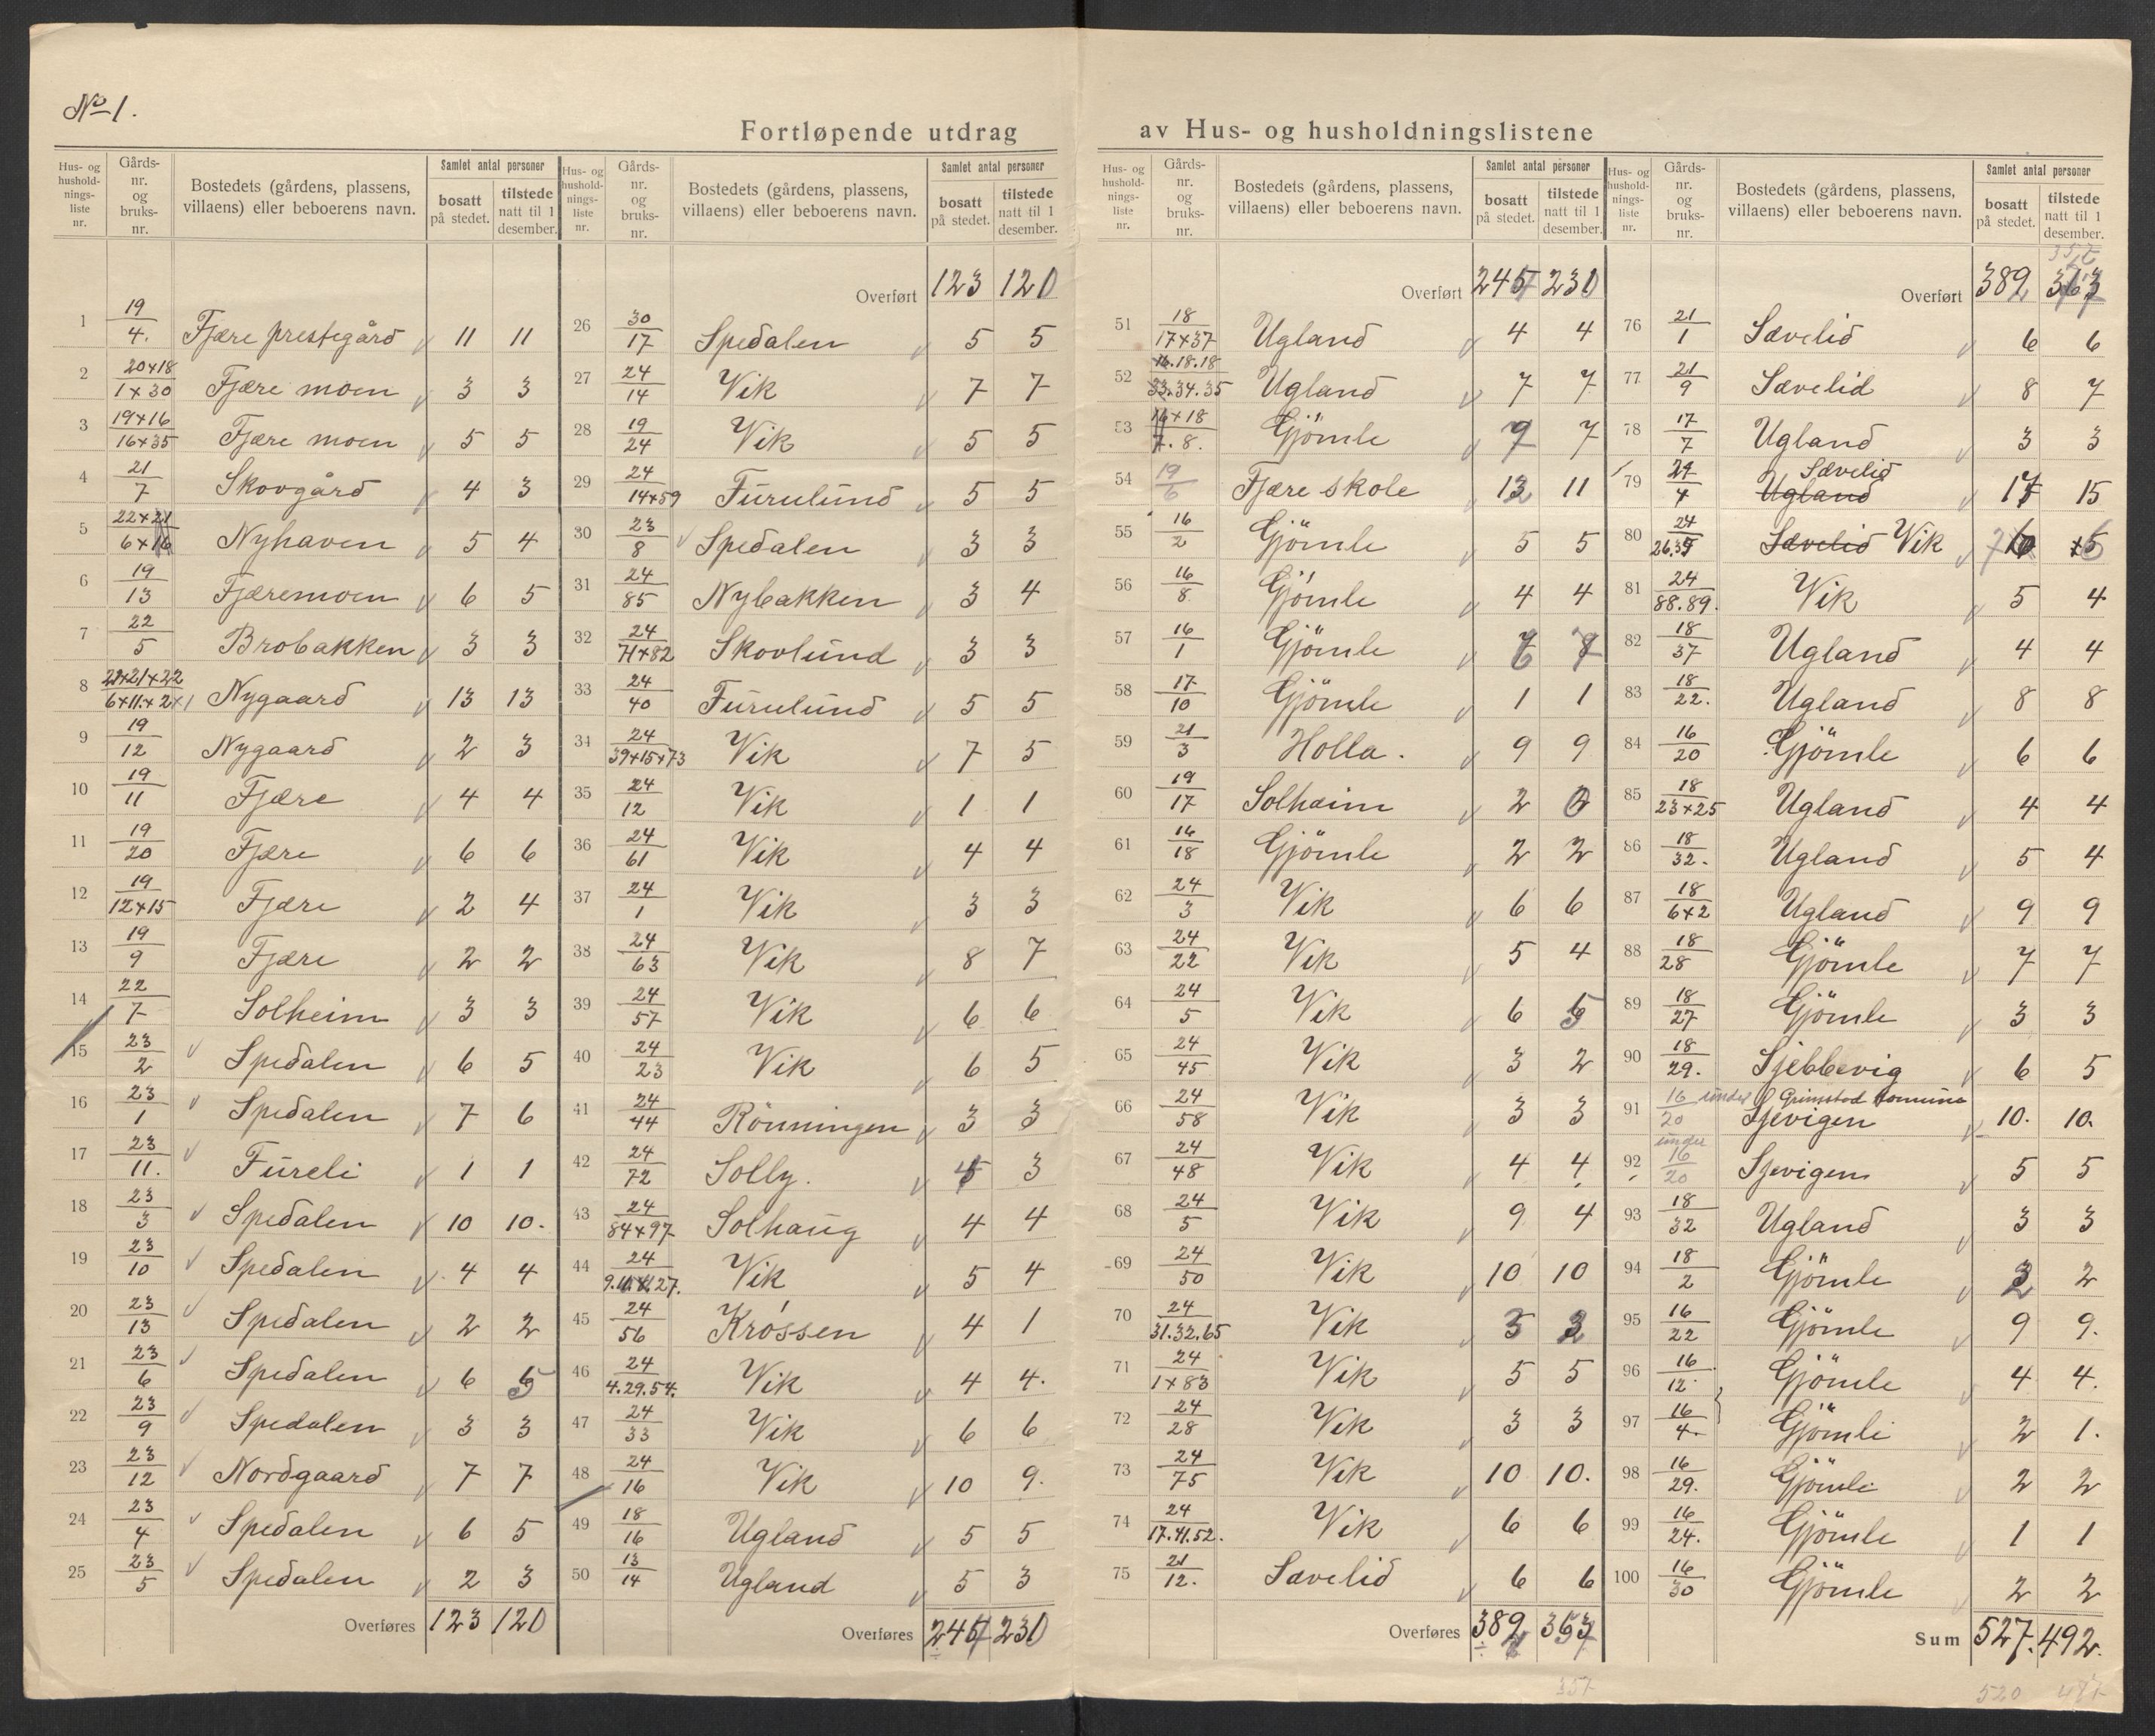 No 1.
Fortløpende utdrag av Hus- og husholdningslistene
Hus- og husholdnings-liste nr. | Gårds-nr. og bruks-nr. | Bostedets (gårdens, plassens, villaens) eller beboerens navn. | Samlet antal personer bosatt på stedet. | tilstede natt til 1 desember.
1 19/4. Fjære prestegård 11 11
2 20+18/1+30 Fjære moen 3 3
3 19+16/16+35 Fjære moen 5 5
4 21/7 Skovgård 4 3
5 22+21/6+16 Nyhaven 5 4
6 19/13 Fjæremoen 6 5
7 22/5 Brobakken 3 3
8 22+21+22/6+11+2+1 Nygaard 13 13
9 19/12 Nygaard 2 3
10 19/11 Fjære 4 4
11 19/20 Fjære 6 6
12 19/12+15 Fjære 2 4
13 19/9 Fjære 2 2
14 22/7 Solheim 3 3
15 23/2 Spedalen 6 5
16 23/1 Spedalen 7 6
17 23/11. Fureli 1 1
18 23/3 Spedalen 10 10.
19 23/10 Spedalen 4 4
20 23/13 Spedalen 2 2
21 23/6 Spedalen 6 5
22 23/9 Spedalen 3 3
23 23/12 Nordgaard 7 7
24 23/4 Spedalen 6 5
25 23/5 Spedalen 2 3
Overføres 123 120
Hus- og husholdnings-liste nr. | Gårds-nr. og bruks-nr. | Bostedets (gårdens, plassens, villaens) eller beboerens navn. | Samlet antal personer bosatt på stedet. | tilstede natt til 1 desember.
Overført 123 120
26 30/17 Spedalen 5 5
27 24/14 Vik 7 7
28 19/24 Vik 5 5
29 24/14+59 Furulund 5 5
30 23/8 Spedalen 3 3
31 24/85 Nybakken 3 4
32 24/71+82 Skovlund 3 3
33 24/40 Furulund 5 5
34 24/39+15+73 Vik 7 5
35 24/12 Vik 1 1
36 24/61 Vik 4 4
37 24/1 Vik 3 3
38 24/63 Vik 8 7
39 24/57 Vik 6 6
40 24/23 Vik 6 5
41 24/44 Rönningen 3 3
42 24/72 Solly. 3
43 24/84+97 Solhaug 4 4
44 24 Vik 5 4
45 24/56 Króssen 4 1
46 24/4.29.54. Vik 4 4.
47 24/33 Vik 6 6
48 24/16 Vik 10 9.
49 18/16 Ugland 5 5
50 13/14 Ugland 5 3
Overføres 230
Hus- og husholdnings-liste nr. | Gårds-nr. og bruks-nr. | Bostedets (gårdens, plassens, villaens) eller beboerens navn. | Samlet antal personer bosatt på stedet. | tilstede natt til 1 desember.
Overført 230
51 18/17+37 Ugland 4 4
52 16.18.18/33.34.35 Ugland 7 7
53 16+18/7.8. Gjömle 7
54 19/6 Fjære skole 11
55 16/2 Gjömle 5 5
56 16/8 Gjömle 4 4
57 16/1 Gjömle
58 17/10 Gjömle 1 1
59 21/3 Holla. 9 9
60 19/17 Solhæim 2
61 16/18 Gjömle 2 2
62 24/3 Vik 6 6
63 24/22 Vik 5 4
64 24/5 Vik 6 5
65 24/45 Vik 3 2
66 24/58 Vik 3 3
67 24/48 Vik 4 4
68 24/5 Vik 9 4
69 24/50 Vik 10 10
70 24/31.32.65 Vik
71 24/1+83 Vik 5 5
72 24/28 Vik 3 3
73 24/75 Vik 10 10.
74 24/17.41.52. Vik 6 6
75 21/12. Sævelid 6 6
Overføres 389 363
357
Hus- og husholdnings-liste nr. | Gårds-nr. og bruks-nr. | Bostedets (gårdens, plassens, villaens) eller beboerens navn. | Samlet antal personer bosatt på stedet. | tilstede natt til 1 desember.
357
Overført 389 363
76 21/1 Sævelid 6 6
77 21/9 Sævelid 8 7
78 17/7 Ugland 3 3
79 21/4 Ugland Sævelid 17 15
80 24/26.35 Sævelid Vik 6 5
81 24/88.89. Vik 5 4
82 18/37 Ugland 4 4
83 18/22. Ugland 8 8
84 16/20 Gjömle 6 6
85 18/23+25 Ugland 4 4
86 18/32. Ugland 5 4
87 18/6+2 Ugland 9 9
88 18/28 Gjömle 7 7
89 18/27 Gjömle 3 3
90 18/29. Sjebbevig 6 5
91 16/20 under Grimstad komune Sjevigen 10. 10.
92 under 16/20 Sjevigen 5 5
93 18/32 Ugland 3 3
94 18/2 Gjömle 2 2
95 16/22 Gjömle 9 9.
96 16/12. Gjömle 4 4.
97 16/4. Gjömle 2 1.
98 16/29. Gjömle 2 2
99 16/24. Gjömle 1 1
100 16/30 Gjömle 2 2
Sum 527. 492.
520 487